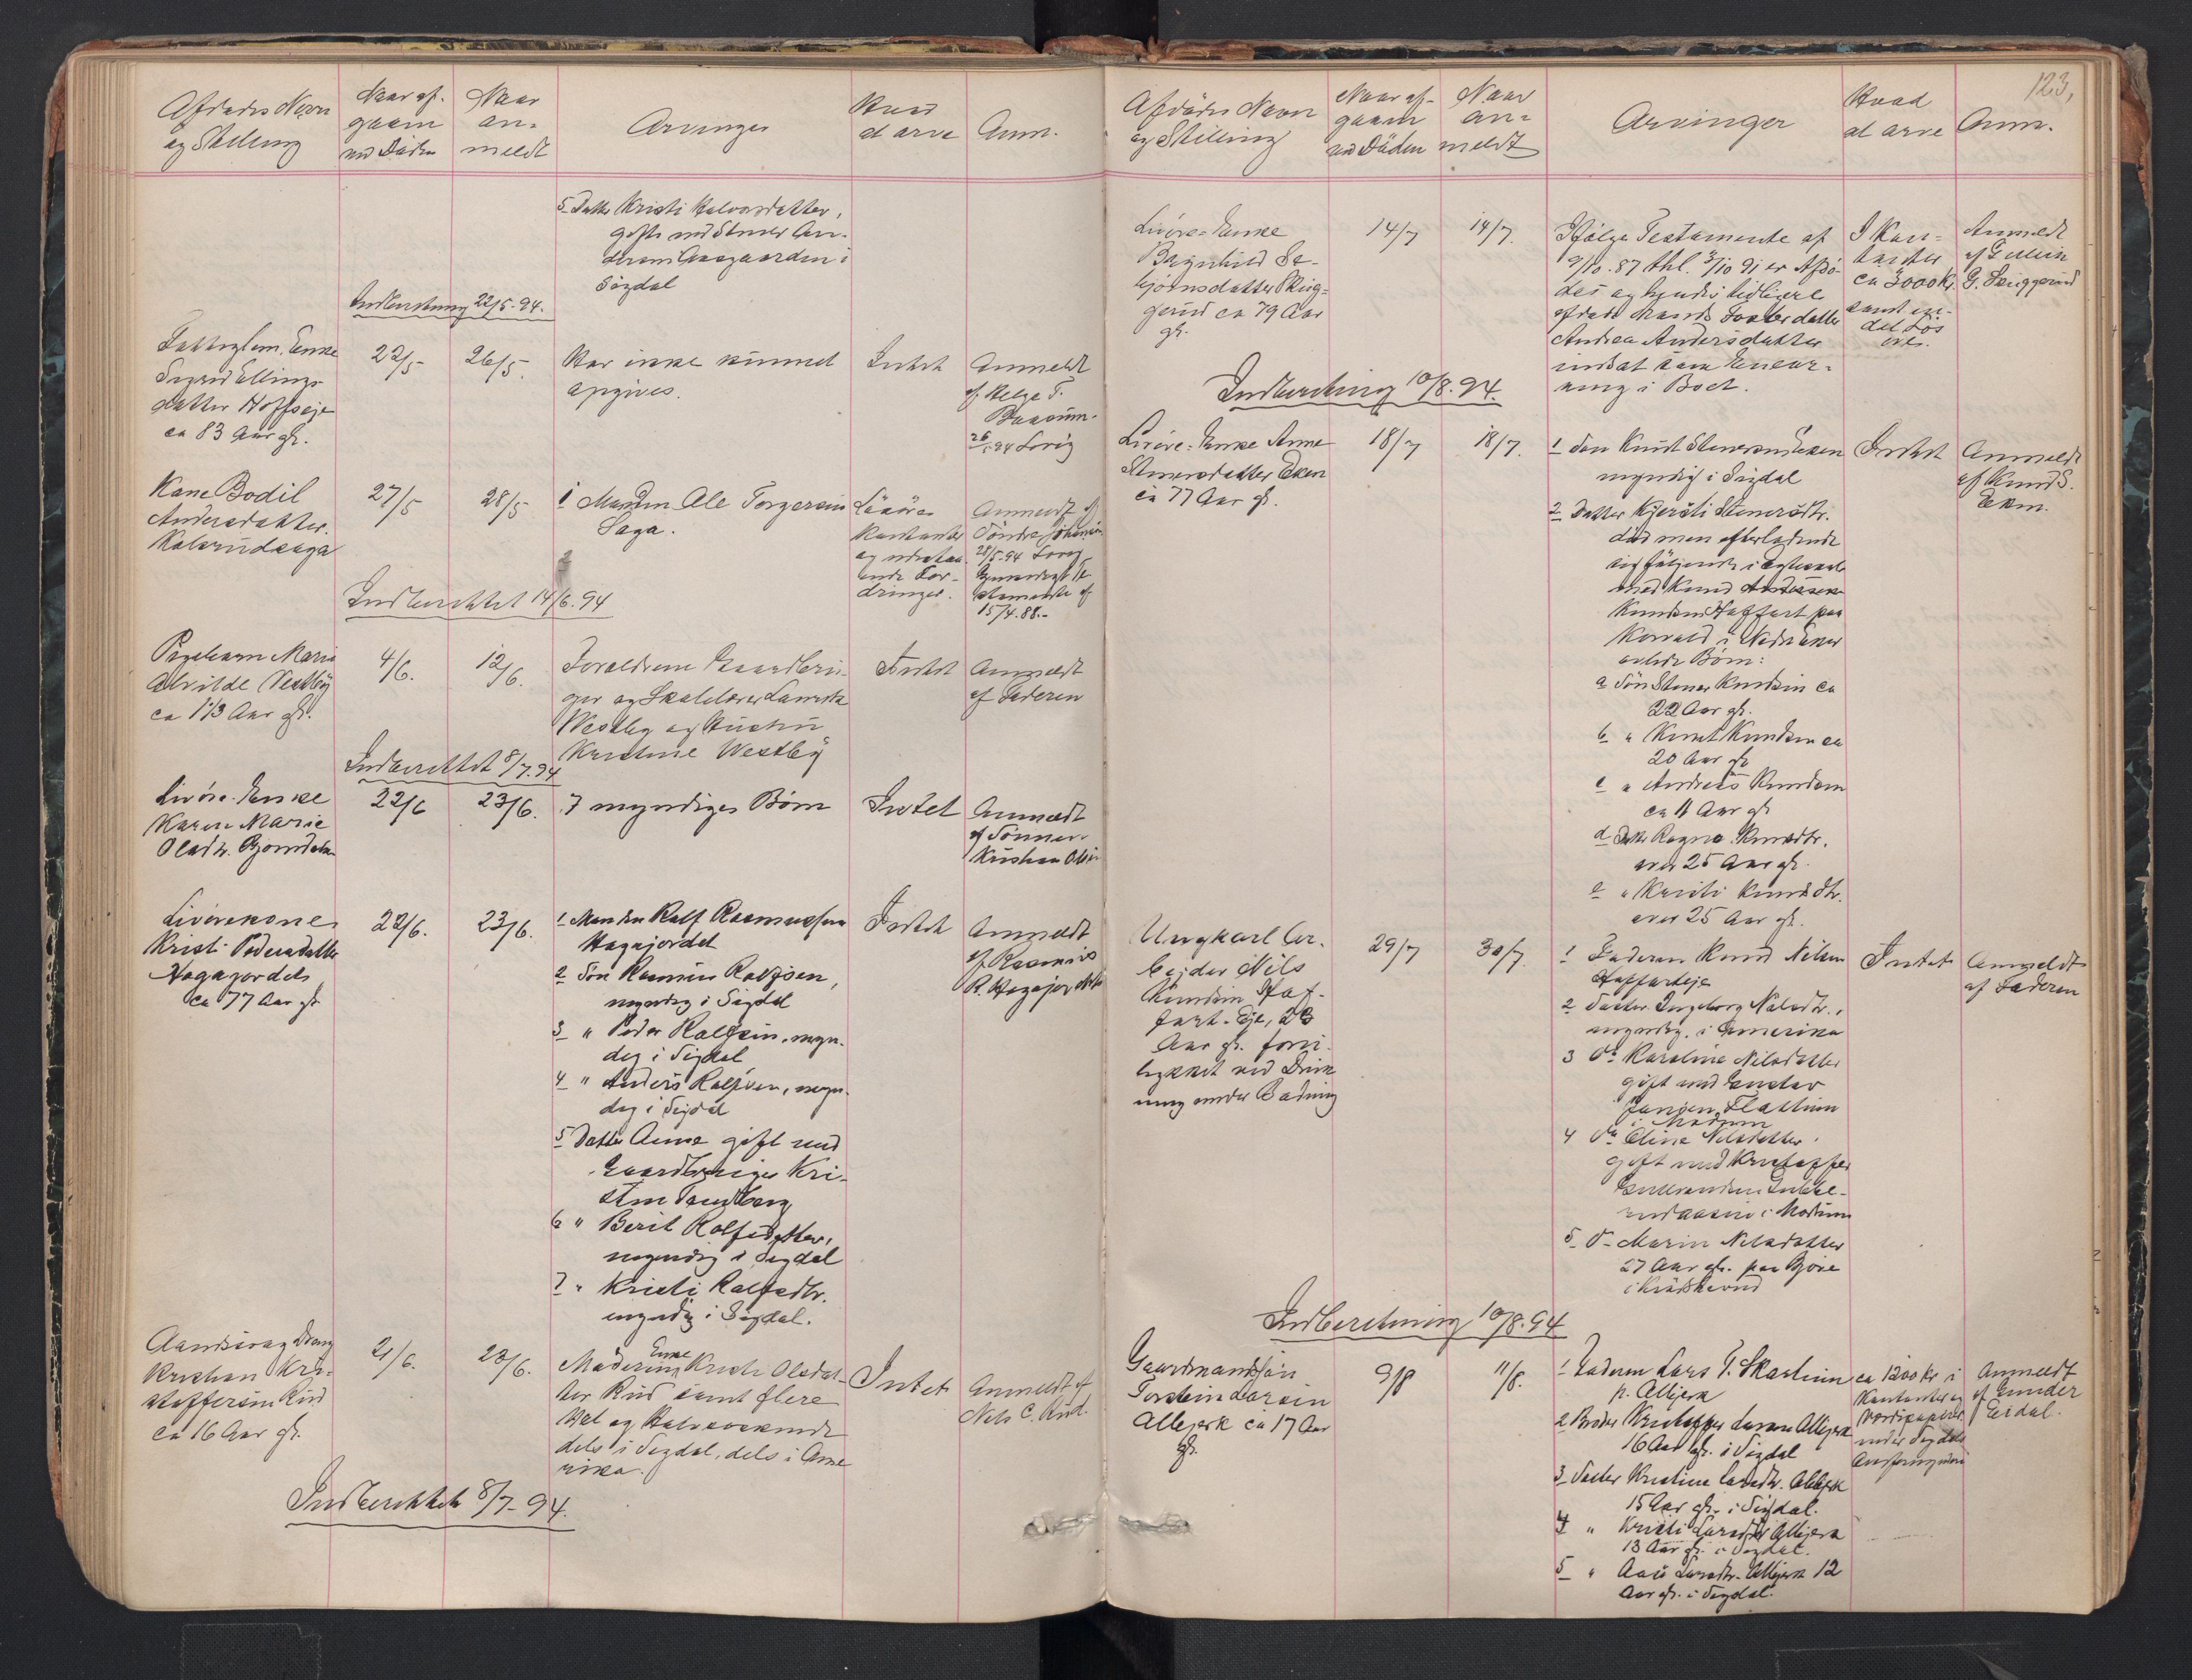 Afdødes Navn
og Stilling
Naar af-
gaaen
ved Døden
Naar
an-
meldt
Arvinger
Hvad
at arve
Anm.
5 Datter Kristi Halvorsdatter,
gift med Stener An-
dersen Aasgaarden i
Sigdal
Indberetning 22/5-94.
Fattiglem, Enke
Sigrid Ellings-
datter Hoffseje
ca 83 Aar gl.
22/5
26/5.
Har ikke kunnet
opgives.
Intet
Anmeldt
af Helge T.
26/5 94
Kone Bodil
Andersdatter
Kolsrudsaga
27/5
28/5
1 Manden Ole Torgersen
Saga.
Løsøre
Kontanter
og udestaa-
ende For-
dringer.
Anmeldt af
Tøndre Johansen
28/5.94
Gjensidigt Te-
stamente af
15/4.88.-
Indberettet 14/6.94
Pigebarn Marie
Alvilde Vestby
ca 1 1/3 Aar gl.
4/6.
12/6.
Forældrene Gaardbru-
ger og Skolelærer Lauritz
Westby og Hustru
Kristine Westby
Intet
Anmeldt
af Faderen
Indberettet 8/7.94
Livøre-Enke
Karen Marie
Olsdtr. Bjøndalen
22/6
23/6.
7 myndiges Børn
Intet
Anmeldt
af Sønnen
Kristian Olsen
Livørekone
Kristi Pedersdatter
Hagajordet
ca 77 Aar gl
22/6.
23/6.
1 Manden Rolf Rasmussen
Hagajordet
2 Søn Rasmus Rolfsen,
myndig i Sigdal
3 " Peder Rolfsen, myn-
dig i Sigdal
4 " Anders Rolfsen, myn-
dig i Sigdal
5 Datter Anne gift med
Gaardbruger Kri-
sten Tandberg
6 " Berit Rolfsdatter,
myndig i Sigdal
7 " Kristi Rolfsdtr.
myndig i Sigdal.
Intet
Anmeldt
af Rasmus
R. Hagajordet
Aandssvag Dreng
Kristian Kri-
stoffersen Rud
ca 16 Aar gl.
21/6.
23/6.
Moderen Enke Kristi Olsdat-
ter Rud samt flere
Hel og Halvsøskende
dels i Sigdal, dels i Ame
rika.
Intet
Anmeldt af
Nels C. Rud.
Indberettet 8/7-94.
123,
Afdødes Navn
og Stilling
Naar af-
gaaen
ved Døden
Naar
an-
meldt
Arvinger
Hvad
at arve
Anm.
Livøre-Enke
Ragnhild Se-
bjørnsdatter Skrig-
gerud ca 79 Aar
gl.
14/7
14/7.
Ifølge Testamente af
9/10.87 thl. 3/10 91 er Afdø-
des og hendes tidligere
afdøde Mands Søsterdatter
Andrea Andersdatter
indsat som Enear-
ving i Boet.
I Kon-
tanter
ca 3000 Kr.
samt en-
del Løs
øre.
Anmeldt
af Gullein
G. Skriggerud
Indberetning 10/8.94.
Livøre-Enke Anne
Stenersdatter Eken
ca 77 Aar gl.
18/7
18/7.
1 Søn Knut Stenersen Eken
myndig i Sigdal
2 Datter Kjersti Stenersdtr.
død men efterladende
sig følgende i Ægteskab
med Knud Andersen
Knudsen Hoffart paa
Korvald i Nedre Eker
avlede Børn:
a Søn Stener Knudsen ca
22 Aar gl.
b " Knut Knudsen ca
20 Aar gl
c " Andreas Knudsen
ca 11 Aar gl
d Datter Ragna Knudsdtr.
over 25 Aar gl.
e " Kristi Knudsdtr.
over 25 Aar gl.
Intet
Anmeldt
af Knud S.
Eken.
Ungkarl Ar-
bejder Nils
Knudsen Haf-
fart-Eje, 23
Aar gl. foru-
lykket ved Druk
ning under Badning
29/7
30/7.
1 Faderen Knud Nilsen
Haffarteje
2 Søster Ingeborg Nilsdtr.,
myndig, i Amerika
3 Do Karoline Nilsdatter
gift med Gustav
Jansen, Flattum
i Modum
4 Do Eline Nilsdatter
gift med Kristoffer
i Modum
5 Do Marie Nilsdatter
27 Aar gl. paa
i Krødsherred
Intet
Anmeldt
af Faderen
Indberetning 10/8.94
Gaardmandssøn
Torstein Larsen
Albjerk ca 17 Aar
gl.
9/8
11/8.
1 Faderen Lars T. Skartum
p. Albjerk
2 Broder Kristoffer Larsen Albjerk
16 Aar gl. i Sigdal
3 Søster Kristine Larsdtr. Albjerk
15 Aar gl. i Sigdal.
4 " Kristi Larsdtr Albjerk
13 Aar gl. i Sigdal.
5 " Aase Larsdtr. Albjerk 12
Aar gl. i Sigdal.
ca 1200 Kr i
Kontanter og
Værdipapirer
under Sigdals
Anmeldt
af Gunder
Eidal.